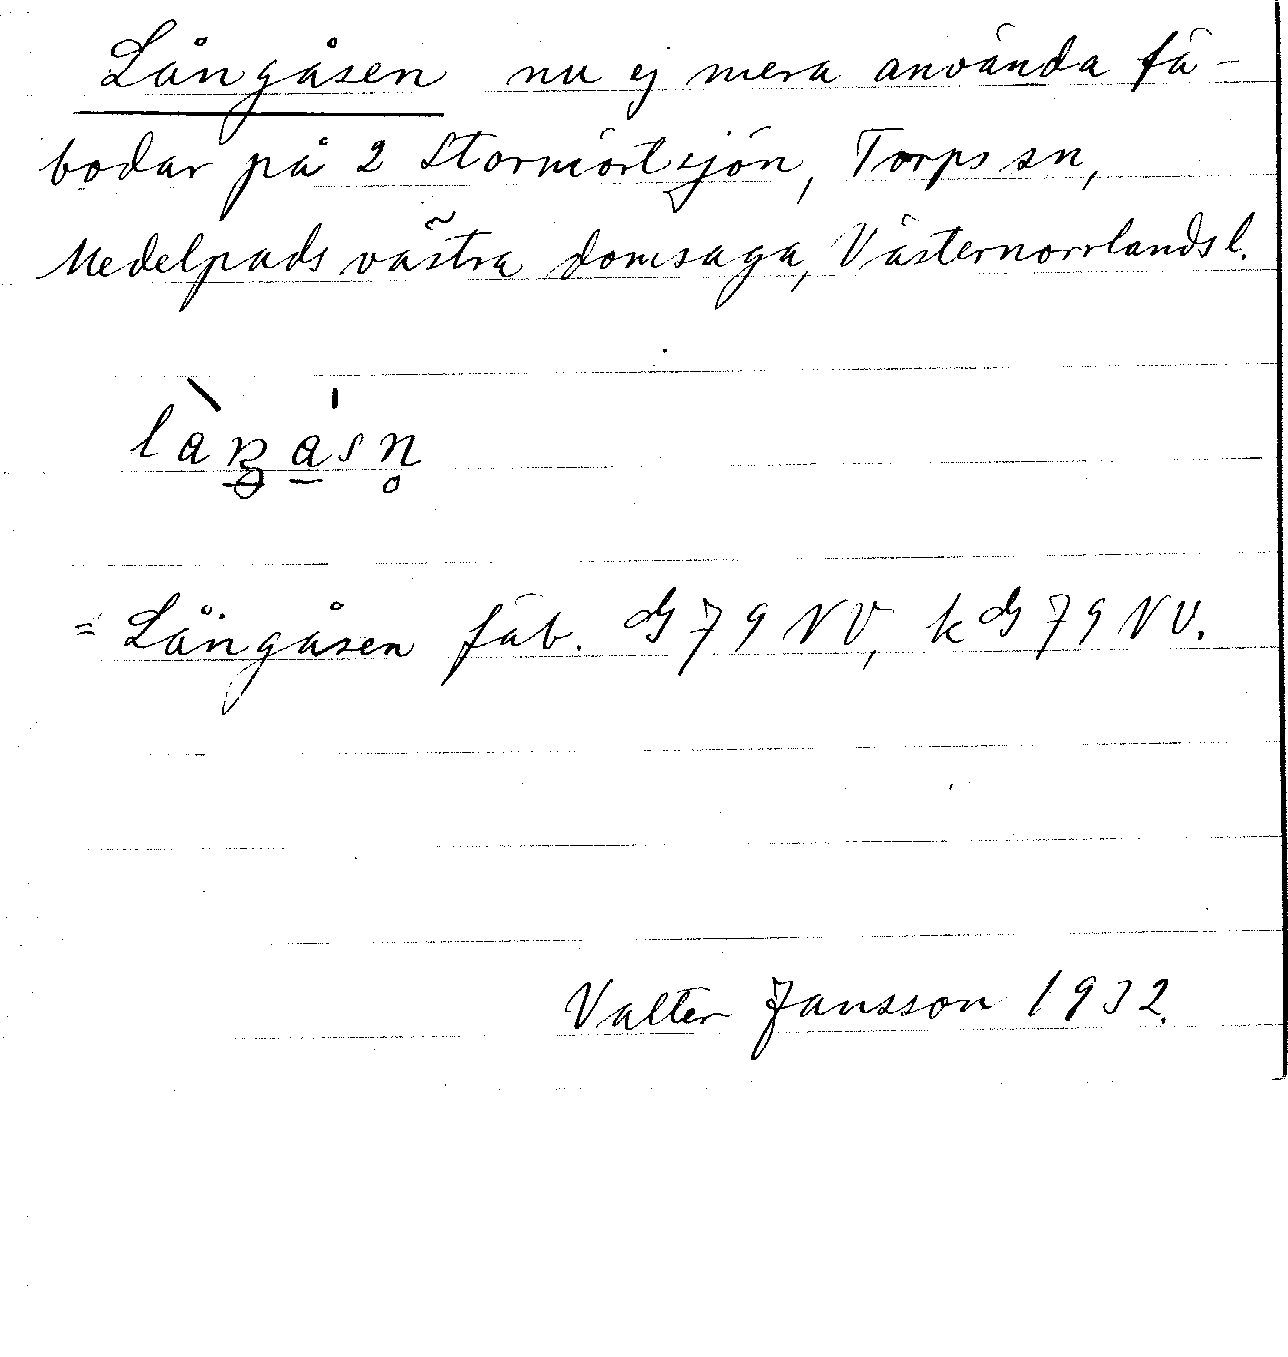 Långåsen nu ej mera använda fä-
bodar på 2 Stormörtsjön, Torps sn,
Medelpads västra domsaga, Västernorrlands l.
= Långåsen fäb. G 79 NV, k G 79 NV.
Valter Jansson 1932.